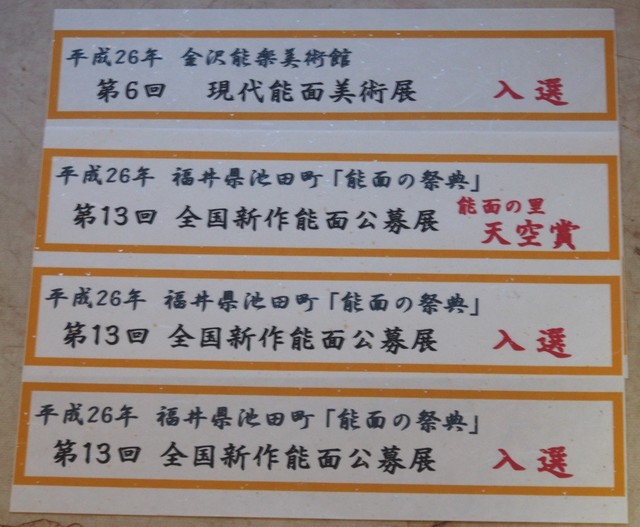 平成26年 金沢能楽美術館
第6回 現代能面美術展 入選
平成26年 福井県池田町「能面の祭典」
能面の里
第13回 全国新作能面公募展 天空賞
平成26年 福井県池田町「能面の祭典」
第13回 全国新作能面公募展 入選
平成26年 福井県池田町「能面の祭典」
第13回 全国新作能面公募展 入選